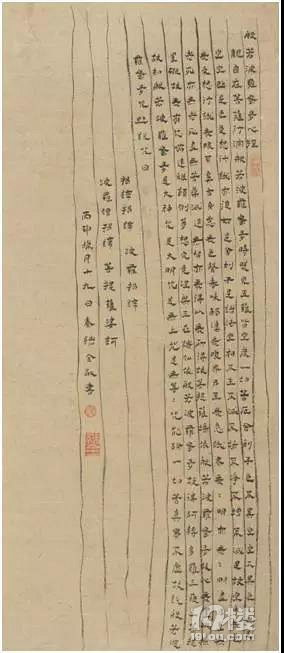 般若波羅蜜多心經
觀自在菩薩行深般若波羅蜜多時照見五蘊皆空度一切苦厄舍利子色不異空空不異色色即是
空空即是色受想行識亦復如是舍利子是諸法空相不生不滅不垢不淨不增不減是故空中
无受想行識无眼耳鼻舌身意无色聲香味觸法无眼界乃至无意識界无无明亦无无明盡乃至
无老死亦无老死盡无苦集滅道无智亦无得以无所得故菩提薩埵依般若波羅蜜多故心无
罣礙故无有恐怖遠離顛倒夢想究竟涅槃三世諸佛依般若波羅蜜多故得阿耨多羅三藐三菩提
故知般若波羅蜜多是大神咒是大明咒是无上咒是无等等咒能除一切苦真實不虛故說般若波
羅蜜多咒即說咒曰
揭諦揭諦 波羅揭諦
波羅僧揭諦 菩提薩婆訶
月十九日奉佛金書
19楼
19lou.com